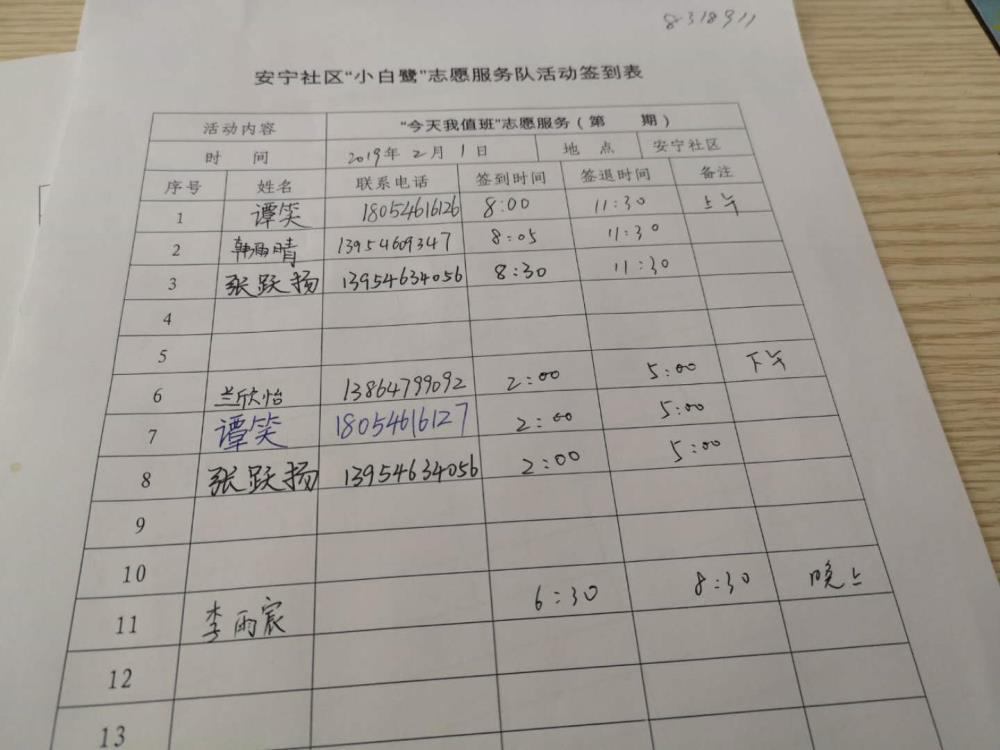 8318911
安宁社区“小白鹭”志愿服务队活动签到表
活动内容 “今天我值班”志愿服务（第 期）
时 间 2019年2月1日 地 点 安宁社区
序号 姓名 联系电话 签到时间 签退时间 备注
1 谭笑 18054616126 8:00 11:30 上午
2 韩雨晴 13954609347 8:05 11:30
3 张跃扬 13954634056 8:30 11:30
4
5
6 兰欣怡 13864799092 2:00 5:00 下午
7 谭笑 18054616127 2:00 5:00
8 张跃扬 13954634056 2:00 5:00
9
10
11 李雨宸 6:30 8:30 晚上
12
13